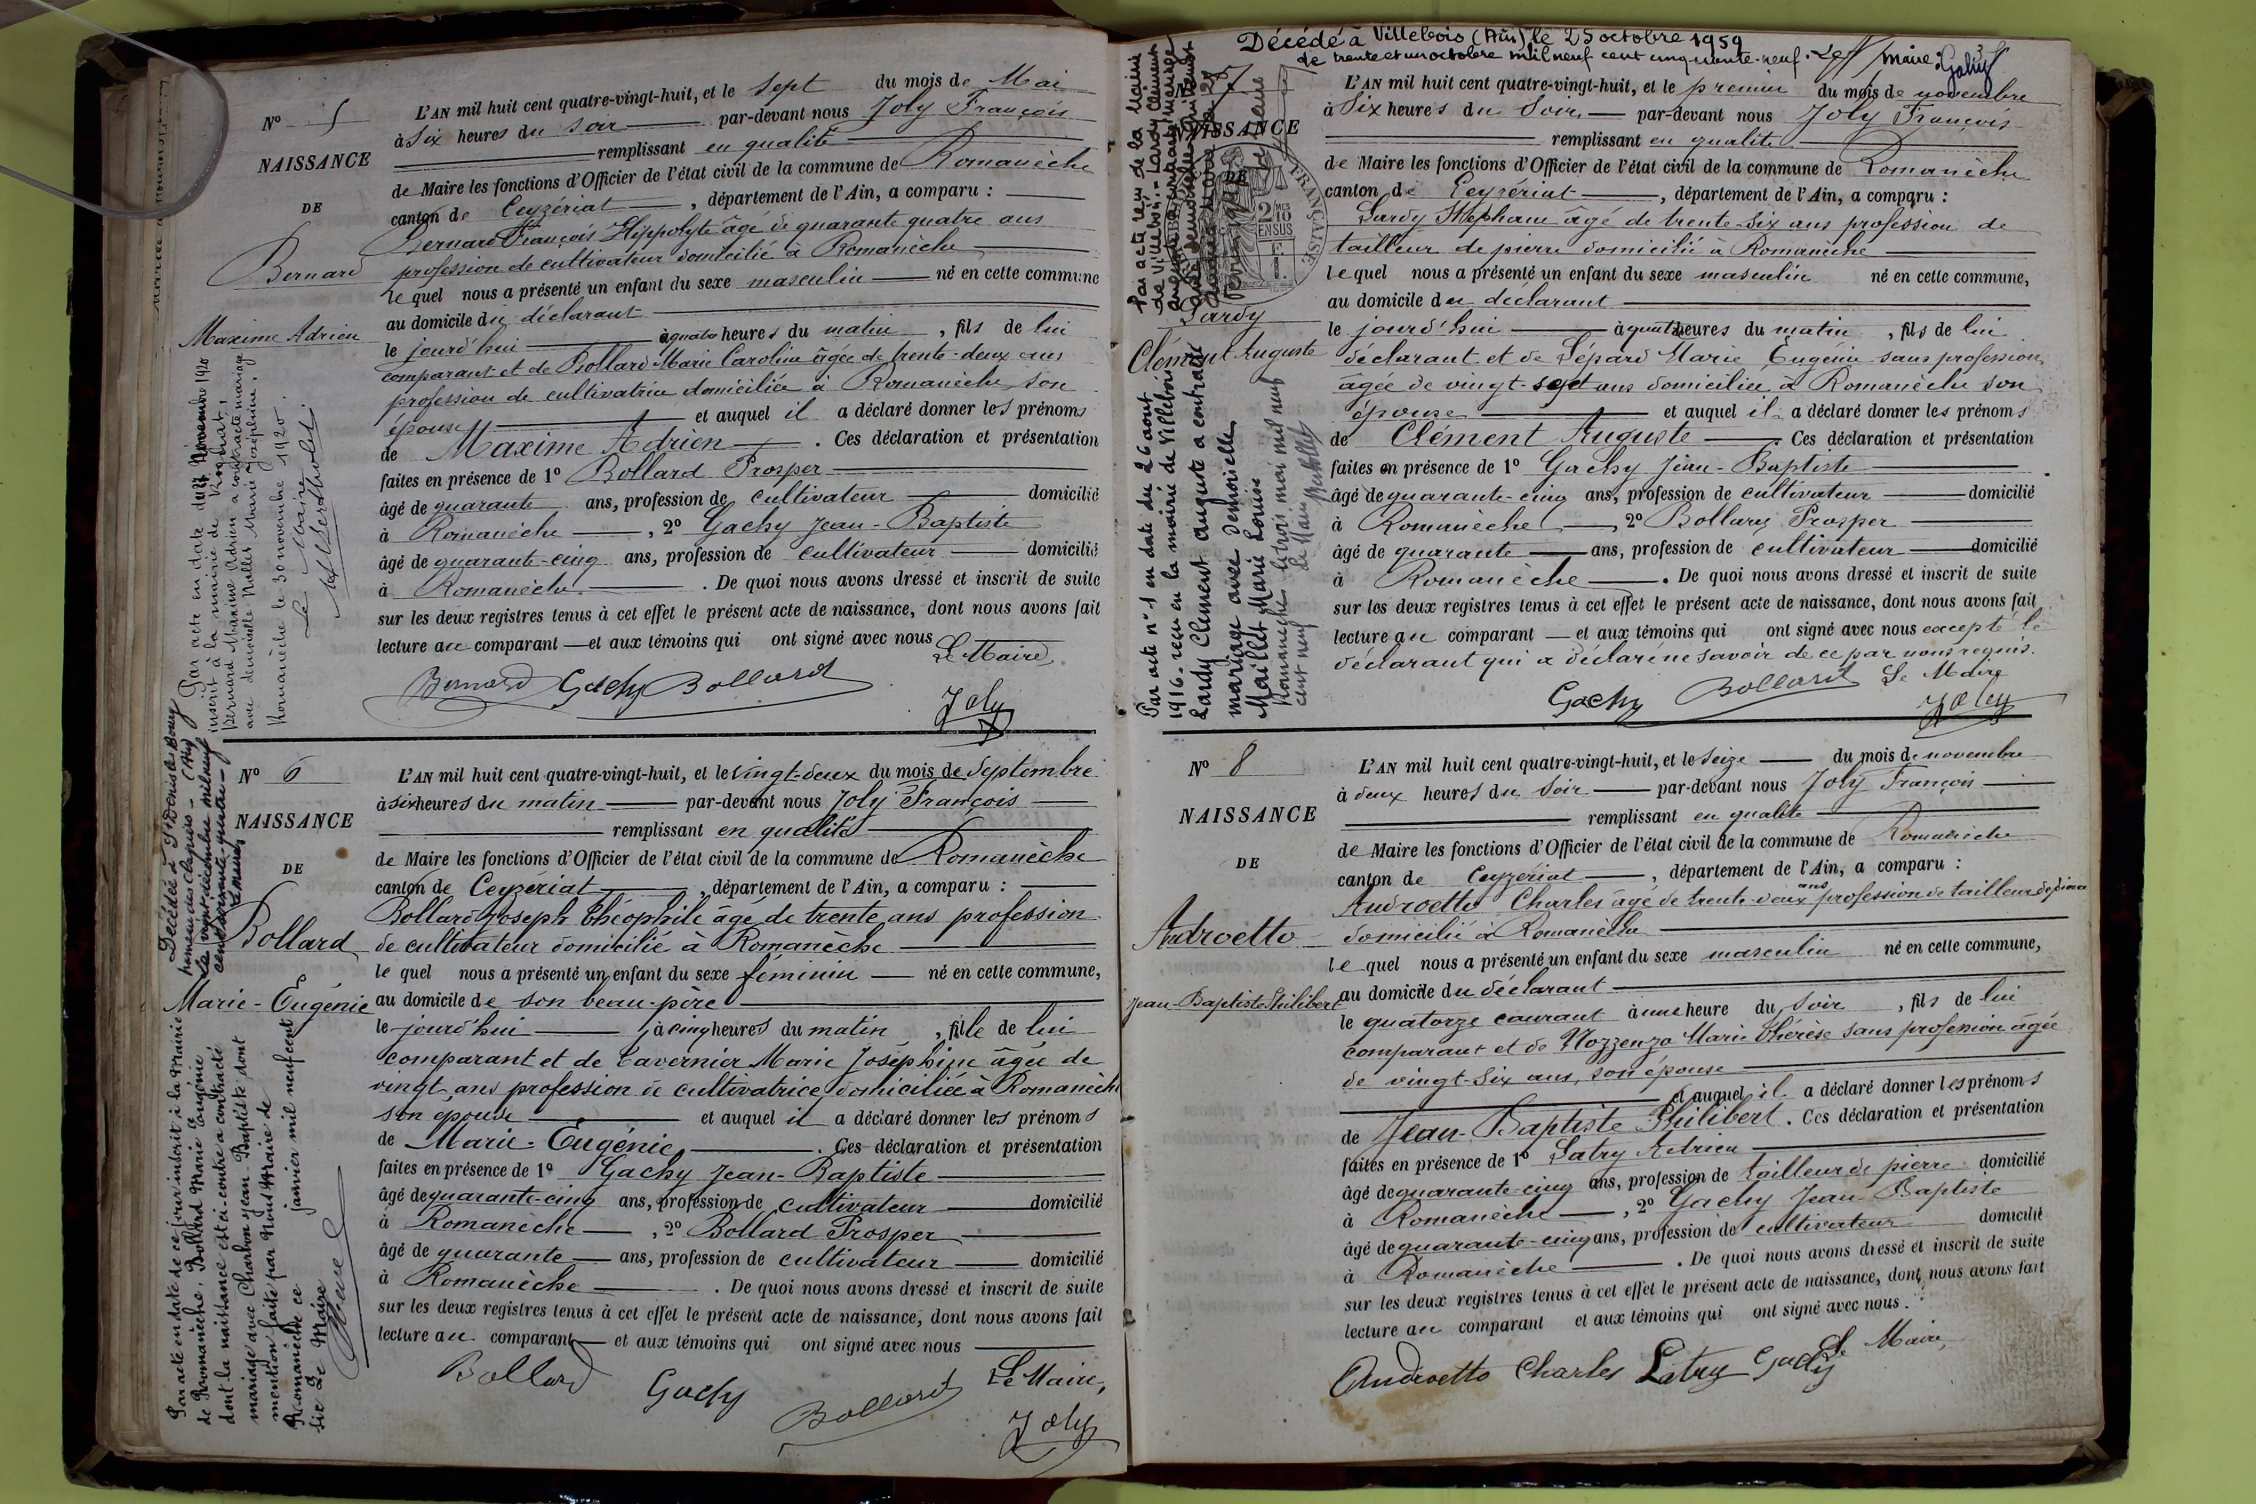 N° 5
NAISSANCE
DE
Bernard
Maxime Adrien
L'AN mil huit cent quatre-vingt-huit, et le sept du mois de Mai
à six heures du soir par-devant nous Joly François
remplissant en qualité
de Maire les fonctions d'Officier de l'état civil de la commune de Romanèche
canton de Ceyzériat, département de l'Ain, a comparu :
Bernard François Hippolyte âgé de quarante quatre ans
profession de cultivateur domicilié à Romanèche
le quel nous a présenté un enfant du sexe masculin né en cette commune
au domicile du déclarant
le jourd'hui à quatre heures du matin, fils de lui
comparant et de Bollard Marie Caroline âgée de trente-deux ans
profession de cultivatrice domiciliée à Romanèche son
épouse et auquel il a déclaré donner les prénoms
de Maxime Adrien. Ces déclaration et présentation
faites en présence de 1° Bollard Prosper
âgé de quarante ans, profession de cultivateur domicilié
à Romanèche, 2° Gachy Jean-Baptiste
âgé de quarante-cinq ans, profession de cultivateur domicilié
à Romanèche. De quoi nous avons dressé et inscrit de suite
sur les deux registres tenus à cet effet le présent acte de naissance, dont nous avons fait
lecture au comparant et aux témoins qui ont signé avec nous
Le Maire
Bernard Gachy Bollard
Joly
Par acte en date du 27 Novembre 1920
inscrit à la mairie de
Bernard Maxime Adrien a contracté mariage
avec demoiselle Nallet Marie Joséphine,
Romanèche le 30 novembre 1920.
Le Maire
N° 6
NAISSANCE
DE
Bollard
Marie-Eugénie
L'AN mil huit cent quatre-vingt-huit, et le vingt-deux du mois de Septembre
à six heures du matin par-devant nous Joly François
remplissant en qualité
de Maire les fonctions d'Officier de l'état civil de la commune de Romanèche
canton de Ceyzériat, département de l'Ain, a comparu :
Bollard Joseph Théophile âgé de trente ans profession
de cultivateur domicilié à Romanèche
le quel nous a présenté un enfant du sexe féminin né en cette commune,
au domicile de son beau-père
le jourd'hui, à cinq heures du matin, fille de lui
comparant et de Tavernier Marie Joséphine âgée de
vingt ans profession de cultivatrice domiciliée à Romanèche
son épouse et auquel il a déclaré donner les prénoms
de Marie-Eugénie. Ces déclaration et présentation
faites en présence de 1° Gachy Jean-Baptiste
âgé de quarante-cinq ans, profession de cultivateur domicilié
à Romanèche, 2° Bollard Prosper
âgé de quarante ans, profession de cultivateur domicilié
à Romanèche. De quoi nous avons dressé et inscrit de suite
sur les deux registres tenus à cet effet le présent acte de naissance, dont nous avons fait
lecture au comparant et aux témoins qui ont signé avec nous
Bollard Gachy Bollard
Le Maire,
Joly
Décédée à St Denis les Bourg
hameau des Chapiers - (Ain)
le vingt décembre mil neuf
cent soixante quatre
Par acte en date de ce jour inscrit à la Mairie
de Romanèche, Bollard Marie Eugénie
dont la naissance est ci-contre a contracté
mariage avec Charbon Jean-Baptiste dont
mention faite par Nous Maire de
Romanèche ce janvier mil neuf cent
six Le Maire
Décédé à Villebois (Ain) le 25 octobre 1959
le trente et un octobre mil neuf cent cinquante-neuf. Le maire: Gachy
N° 7
NAISSANCE
DE
Lardy
Clément Auguste
FRANÇAISE
2 MES 10 EN SUS
L'AN mil huit cent quatre-vingt-huit, et le premier du mois de novembre
à Six heures du Soir, par-devant nous Joly François
remplissant en qualité
de Maire les fonctions d'Officier de l'état civil de la commune de Romanèche
canton de Ceyzériat, département de l'Ain, a comparu :
Lardy Stéphane âgé de trente-six ans profession de
tailleur de pierre domicilié à Romanèche
le quel nous a présenté un enfant du sexe masculin né en cette commune,
au domicile du déclarant
le jourd'hui à quatre heures du matin, fils de lui
déclarant et de Lépard Marie Eugénie sans profession,
âgée de vingt-sept ans domiciliée à Romanèche son
épouse et auquel il a déclaré donner les prénoms
de Clément Auguste. Ces déclaration et présentation
faites en présence de 1° Gachy Jean-Baptiste
âgé de quarante-cinq ans, profession de cultivateur domicilié
à Romanèche, 2° Bollard Prosper
âgé de quarante ans, profession de cultivateur domicilié
à Romanèche. De quoi nous avons dressé et inscrit de suite
sur les deux registres tenus à cet effet le présent acte de naissance, dont nous avons fait
lecture au comparant et aux témoins qui ont signé avec nous excepté le
déclarant qui a déclaré ne savoir de ce par nous requis.
Gachy Bollard Le Maire
Joly
Par acte reçu de la Mairie
de Villebois: Lardy Clément
Par acte n° 1 en date du 26 aout
1916 reçu en la mairie de Villebois
Lardy Clément auguste a contracté
mariage avec Demoiselle
Maillet Marie Louise
Romanèche le trois mai mil neuf
cent neuf Le Maire
N° 8
NAISSANCE
DE
Androetto
Jean-Baptiste Philibert
L'AN mil huit cent quatre-vingt-huit, et le seize du mois de novembre
à deux heures du Soir par-devant nous Joly François
remplissant en qualité
de Maire les fonctions d'Officier de l'état civil de la commune de Romanèche
canton de Ceyzériat, département de l'Ain, a comparu :
Androetto Charles âgé de trente-deux ans profession de tailleur de pierre
domicilié à Romanèche
le quel nous a présenté un enfant du sexe masculin né en cette commune,
au domicile du déclarant
le quatorze courant à une heure du Soir, fils de lui
comparant et de Nozzenzo Marie Thérèse sans profession âgée
de vingt-six ans, son épouse
et auquel il a déclaré donner les prénoms
de Jean-Baptiste Philibert. Ces déclaration et présentation
faites en présence de 1° Latry Adrien
âgé de quarante-cinq ans, profession de tailleur de pierre domicilié
à Romanèche, 2° Gachy Jean-Baptiste
âgé de quarante-cinq ans, profession de cultivateur domicilié
à Romanèche. De quoi nous avons dressé et inscrit de suite
sur les deux registres tenus à cet effet le présent acte de naissance, dont nous avons fait
lecture au comparant et aux témoins qui ont signé avec nous.
Le Maire,
Androetto Charles Latry Gachy